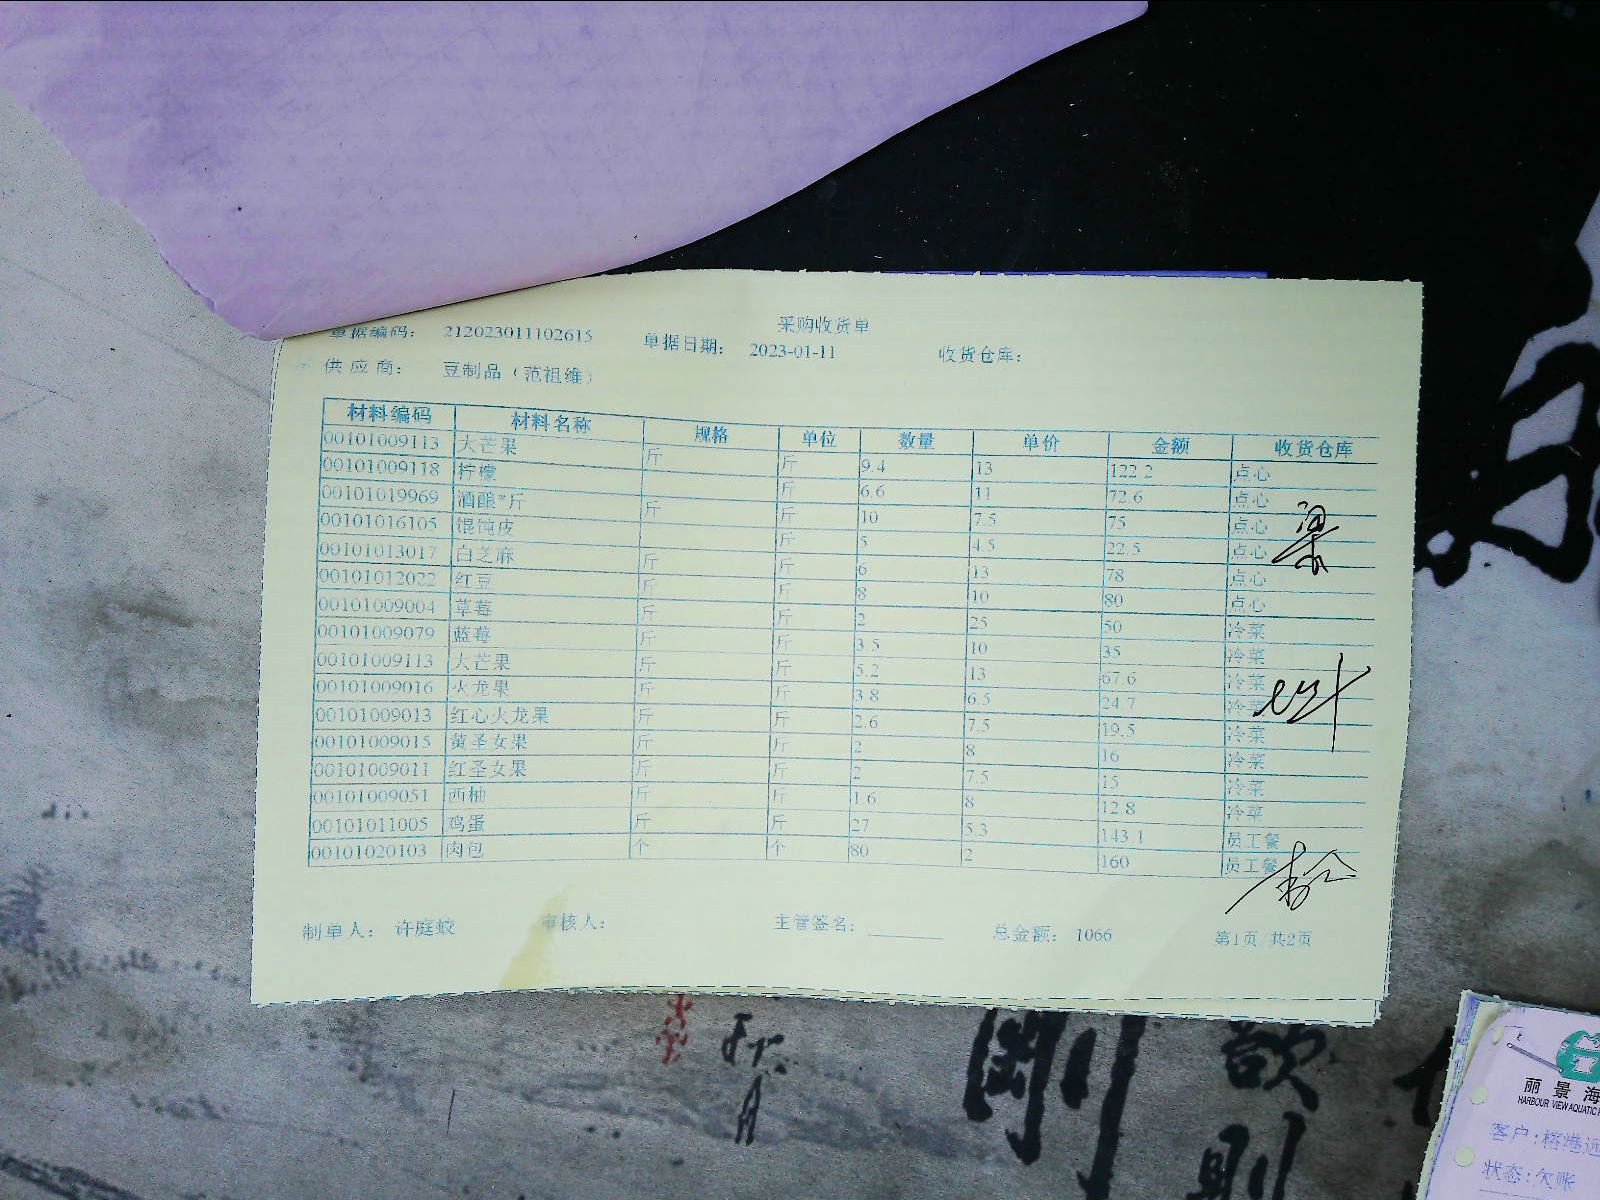 采购收货单
单据编码： 212023011102615 单据日期： 2023-01-11 收货仓库：
供 应 商： 豆制品（范祖维）
材料编码 材料名称 规格 单位 数量 单价 金额 收货仓库
00101009113 大芒果 斤 斤 9.4 13 122.2 点心
00101009118 柠檬 斤 6.6 11 72.6 点心
00101019969 酒酿*斤 斤 斤 10 7.5 75 点心
00101016105 馄饨皮 斤 5 4.5 22.5 点心
00101013017 白芝麻 斤 斤 6 13 78 点心
00101012022 红豆 斤 斤 8 10 80 点心
00101009004 草莓 斤 斤 2 25 50 冷菜
00101009079 蓝莓 斤 斤 3.5 10 35 冷菜
00101009113 大芒果 斤 斤 5.2 13 67.6 冷菜
00101009016 火龙果 斤 斤 3.8 6.5 24.7 冷菜
00101009013 红心火龙果 斤 斤 2.6 7.5 19.5 冷菜
00101009015 黄圣女果 斤 斤 2 8 16 冷菜
00101009011 红圣女果 斤 斤 2 7.5 15 冷菜
00101009051 西柚 斤 斤 1.6 8 12.8 冷菜
00101011005 鸡蛋 斤 斤 27 5.3 143.1 员工餐
00101020103 肉包 个 个 80 2 160 员工餐
梁
制单人： 许庭蛟 审核人： 主管签名： 总金额： 1066 第1页/共2页
剛
歌
則
丽景海
HARBOUR VIEW AQUATIC
客户:榕港远
状态:欠账